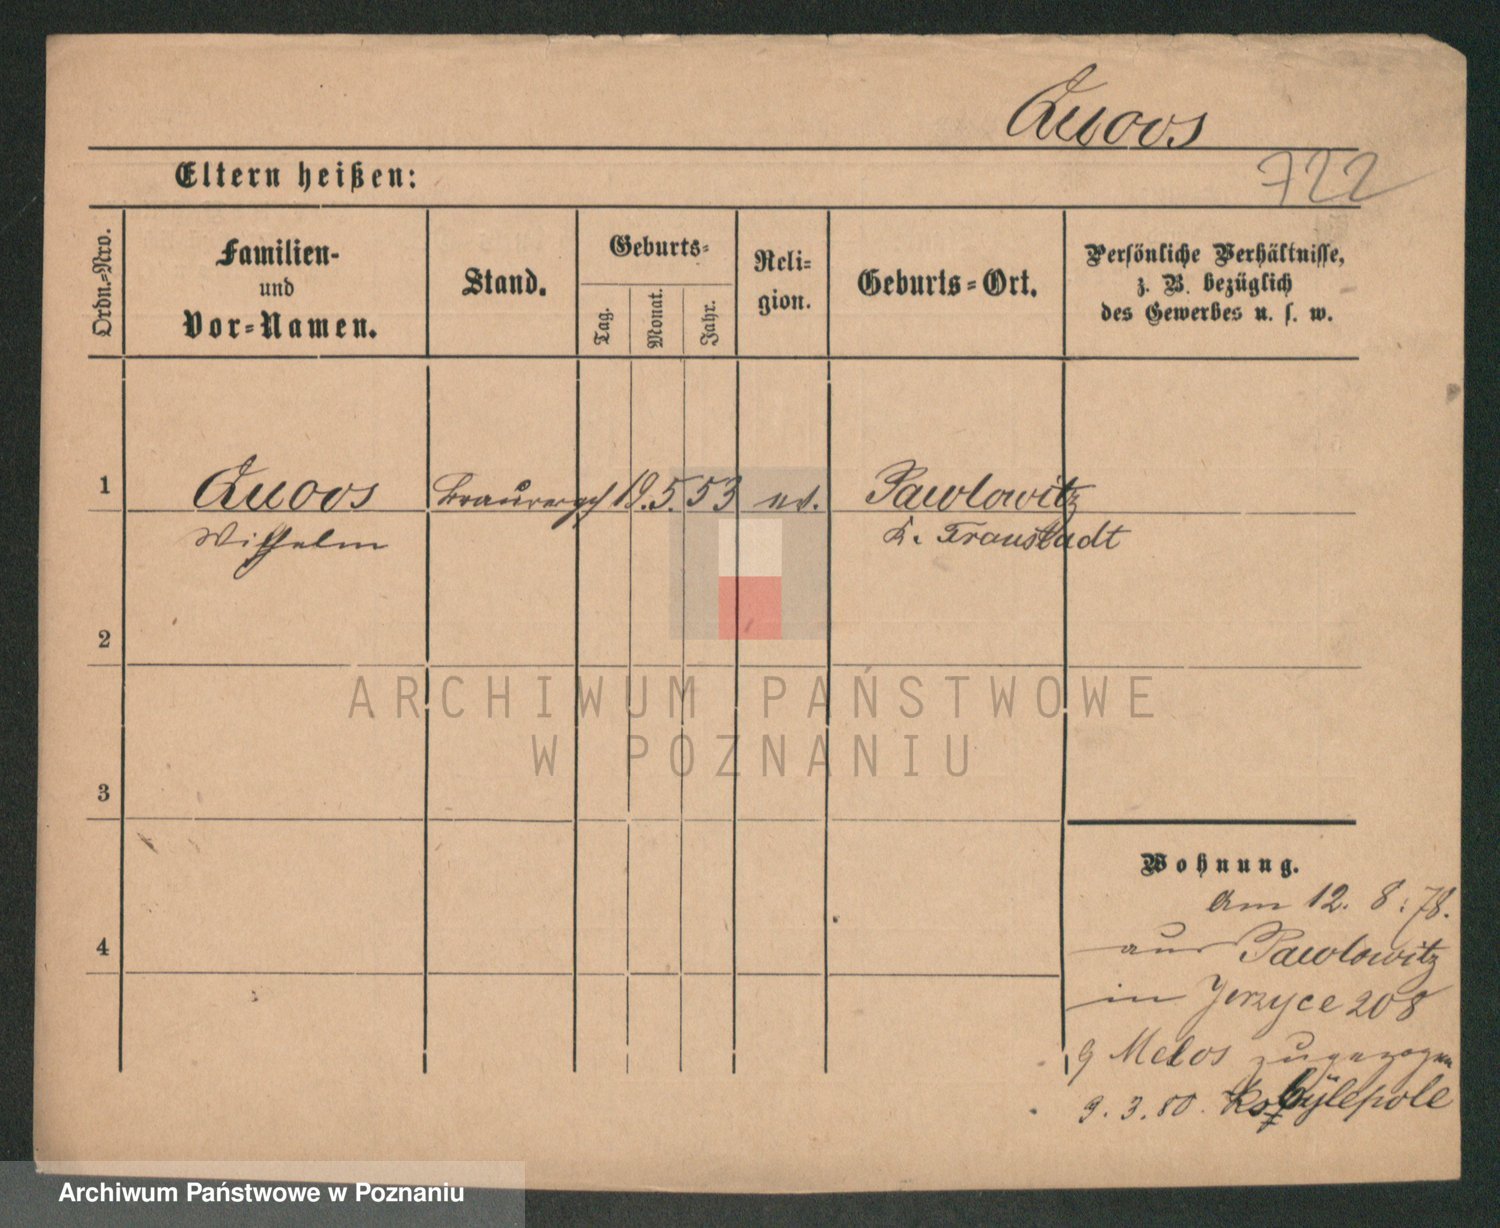 Quoos
722
Eltern heißen:
Ordn.-Nro.
Familien-
und
Vor-Namen.
Stand.
Geburts-
Tag.
Monat.
Jahr.
Reli-
gion.
Geburts-Ort.
Persönliche Verhältnisse,
z. B. bezüglich
des Gewerbes u. s. w.
1
Quoos
Brauergh
19. 5. 53
ev.
Pawlowitz
Wilhelm
K. Fraustadt
2
ARCHIWUM PAŃSTWOWE
W POZNANIU
3
Wohnung.
Am 12. 8. 78.
aus Pawlowitz
4
in Jerzyce 208
zugezogen
9. 3. 80.
Archiwum Państwowe w Poznaniu